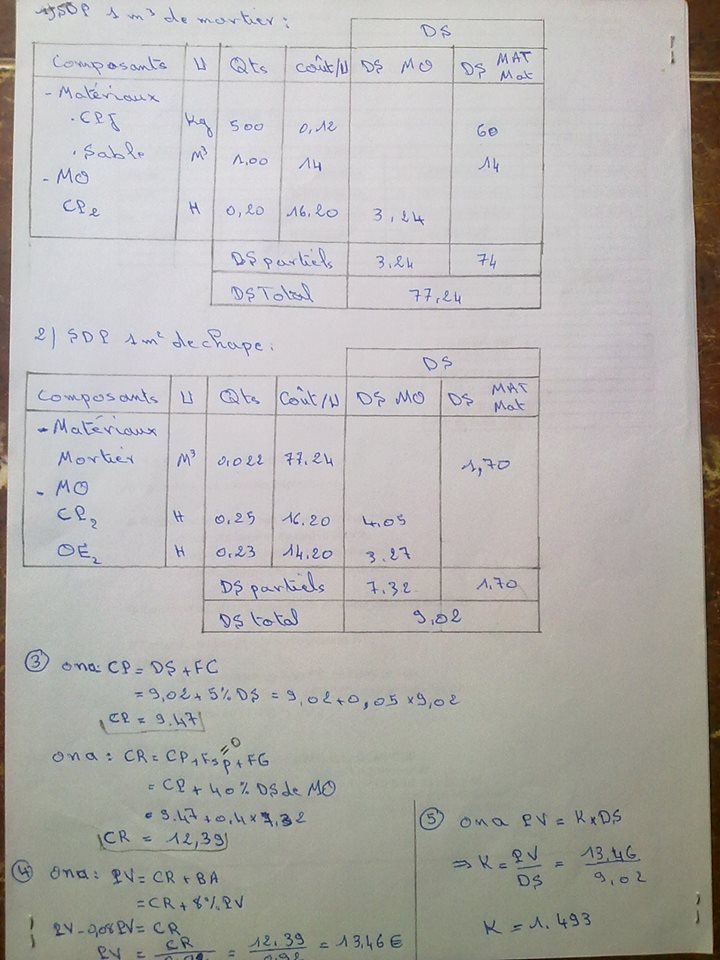 1) SDP 1 m³ de mortier :
DS
Composants U Qts coût/U DS MO DS MAT Mat
- Matériaux
. CPJ Kg 500 0,12 60
. Sable M³ 1,00 14 14
- MO
CP2 H 0,20 16,20 3,24
DS partiels 3,24 74
DS Total 77,24
2) SDP 1 m² de chape :
DS
Composants U Qts Coût/U DS MO DS MAT Mat
- Matériaux
Mortier M³ 0,022 77.24 1,70
- MO
CP2 H 0,25 16.20 4.05
OE2 H 0,23 14.20 3.27
DS partiels 7.32 1,70
DS total 9,02
③ ona: CP = DS + FC
= 9,02 + 5% DS = 9,02 + 0,05 × 9,02
CP = 9.47
ona : CR = CP + Fsp + FG
= 0
= CP + 40% DS de MO
= 9.47 + 0.4 × 7.32
CR = 12,39
④ ona : PV = CR + BA
= CR + 8% PV
PV - 0,08 PV = CR
PV = CR/0,92 = 12.39/0.92 = 13,46 €
⑤ ona PV = K × DS
⇒ K = PV/DS = 13,46/9,02
K = 1.493